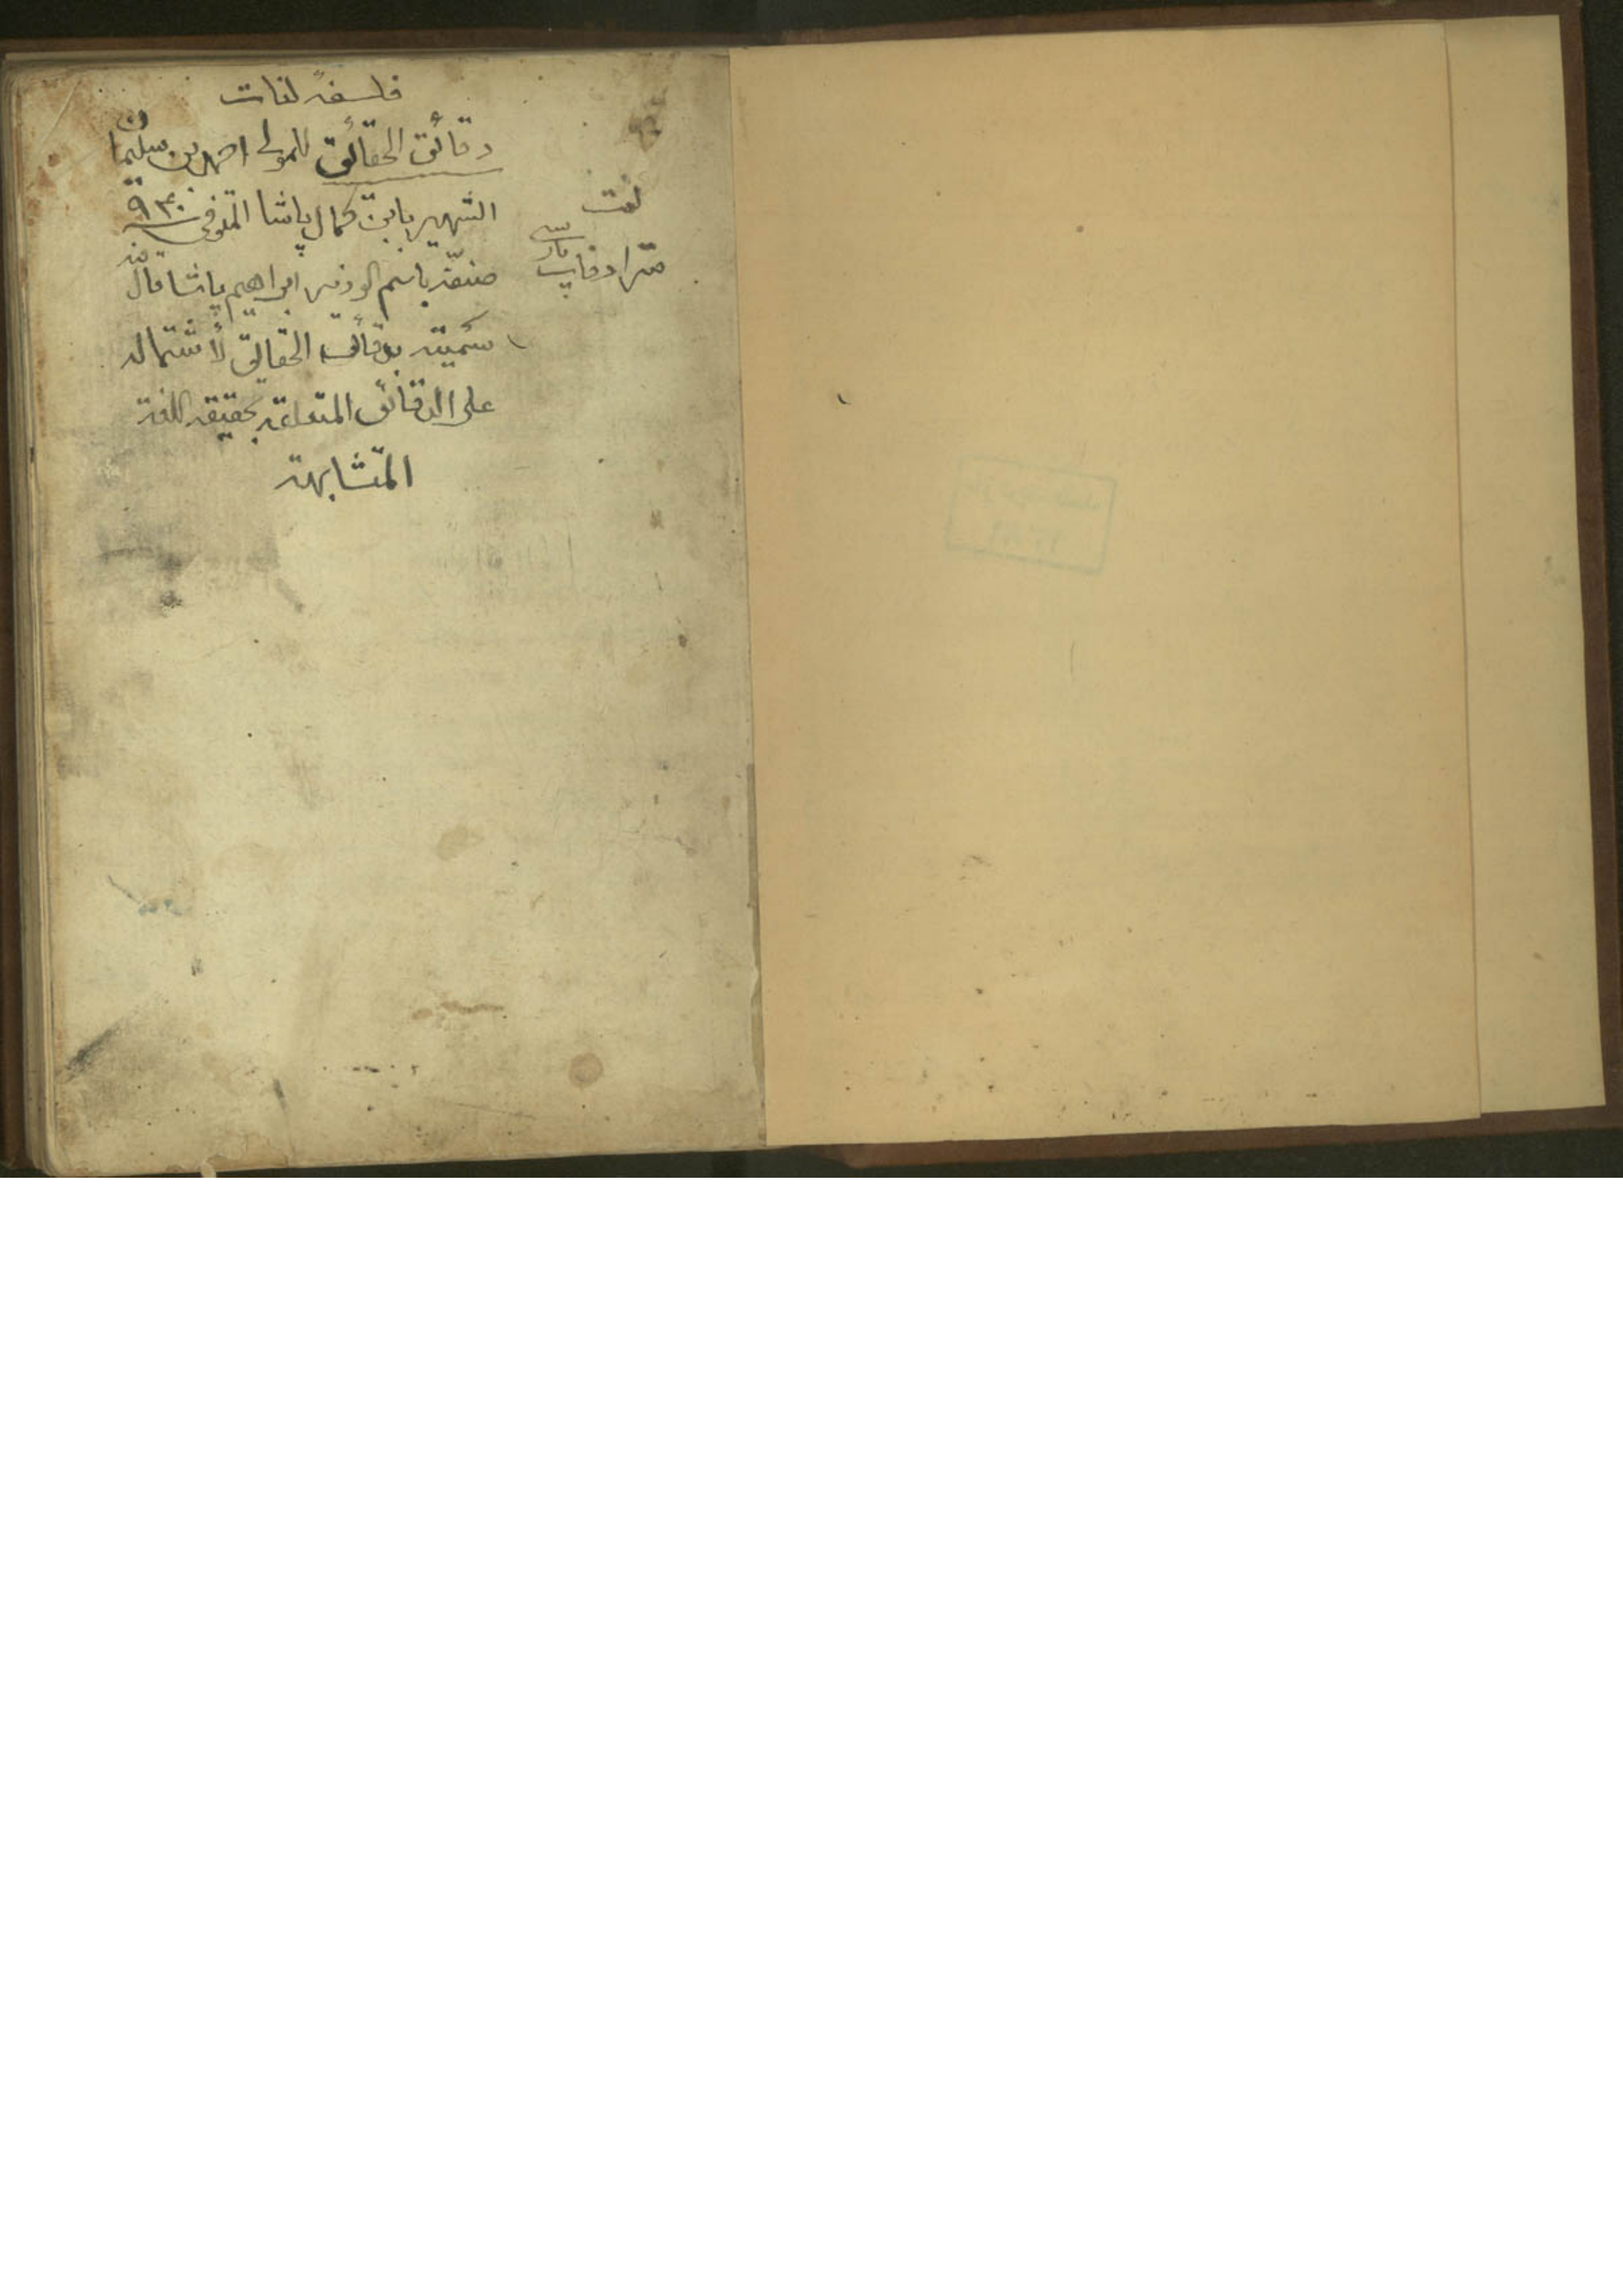 فلسفۀ لغات
دقائق الحقائق للمولى احمد بن سليمان
الشهير بابن كمال پاشا المتوفى سنة ٩٤٠
صنفه باسم الوزير ابراهيم پاشا قال فيه
سميته بدقائق الحقائق لأشتماله
على الدقائق المتعلقة بحقيقة اللغة
المتشابهة
لغت
مترادفات
پارسى